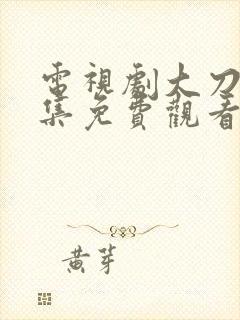 電視劇大刀
集免費觀看
黃芽